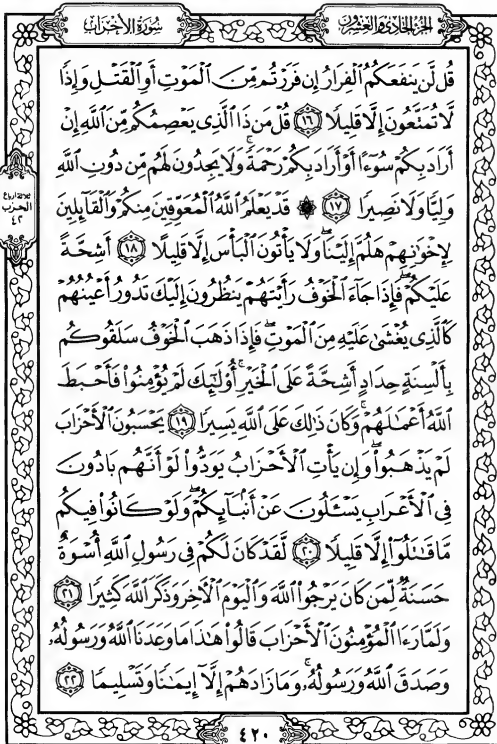 سُورَةُ الأَحْزَابِ
الجُزْءُ الحَادِى وَالعِشْرُونَ
قُل لَّن يَنفَعَكُمُ ٱلْفِرَارُ إِن فَرَرْتُم مِّنَ ٱلْمَوْتِ أَوِ ٱلْقَتْلِ وَإِذًا
لَّا تُمَتَّعُونَ إِلَّا قَلِيلًا ١٦ قُلْ مَن ذَا ٱلَّذِى يَعْصِمُكُم مِّنَ ٱللَّهِ إِنْ
أَرَادَ بِكُمْ سُوٓءًا أَوْ أَرَادَ بِكُمْ رَحْمَةً ۚ وَلَا يَجِدُونَ لَهُم مِّن دُونِ ٱللَّهِ
وَلِيًّا وَلَا نَصِيرًا ١٧ ۞ قَدْ يَعْلَمُ ٱللَّهُ ٱلْمُعَوِّقِينَ مِنكُمْ وَٱلْقَآئِلِينَ
لِإِخْوَٰنِهِمْ هَلُمَّ إِلَيْنَا ۖ وَلَا يَأْتُونَ ٱلْبَأْسَ إِلَّا قَلِيلًا ١٨ أَشِحَّةً
عَلَيْكُمْ ۖ فَإِذَا جَآءَ ٱلْخَوْفُ رَأَيْتَهُمْ يَنظُرُونَ إِلَيْكَ تَدُورُ أَعْيُنُهُمْ
كَٱلَّذِى يُغْشَىٰ عَلَيْهِ مِنَ ٱلْمَوْتِ ۖ فَإِذَا ذَهَبَ ٱلْخَوْفُ سَلَقُوكُم
بِأَلْسِنَةٍ حِدَادٍ أَشِحَّةً عَلَى ٱلْخَيْرِ ۚ أُو۟لَٰٓئِكَ لَمْ يُؤْمِنُوا۟ فَأَحْبَطَ
ٱللَّهُ أَعْمَٰلَهُمْ ۚ وَكَانَ ذَٰلِكَ عَلَى ٱللَّهِ يَسِيرًا ١٩ يَحْسَبُونَ ٱلْأَحْزَابَ
لَمْ يَذْهَبُوا۟ ۖ وَإِن يَأْتِ ٱلْأَحْزَابُ يَوَدُّوا۟ لَوْ أَنَّهُم بَادُونَ
فِى ٱلْأَعْرَابِ يَسْـَٔلُونَ عَنْ أَنۢبَآئِكُمْ ۖ وَلَوْ كَانُوا۟ فِيكُم
مَّا قَٰتَلُوٓا۟ إِلَّا قَلِيلًا ٢٠ لَّقَدْ كَانَ لَكُمْ فِى رَسُولِ ٱللَّهِ أُسْوَةٌ
حَسَنَةٌ لِّمَن كَانَ يَرْجُوا۟ ٱللَّهَ وَٱلْيَوْمَ ٱلْـَٔاخِرَ وَذَكَرَ ٱللَّهَ كَثِيرًا ٢١
وَلَمَّا رَءَا ٱلْمُؤْمِنُونَ ٱلْأَحْزَابَ قَالُوا۟ هَٰذَا مَا وَعَدَنَا ٱللَّهُ وَرَسُولُهُۥ
وَصَدَقَ ٱللَّهُ وَرَسُولُهُۥ ۚ وَمَا زَادَهُمْ إِلَّآ إِيمَٰنًا وَتَسْلِيمًا ٢٢
ثلاثة ارباع
الحزب
٤٢
٤٢٠